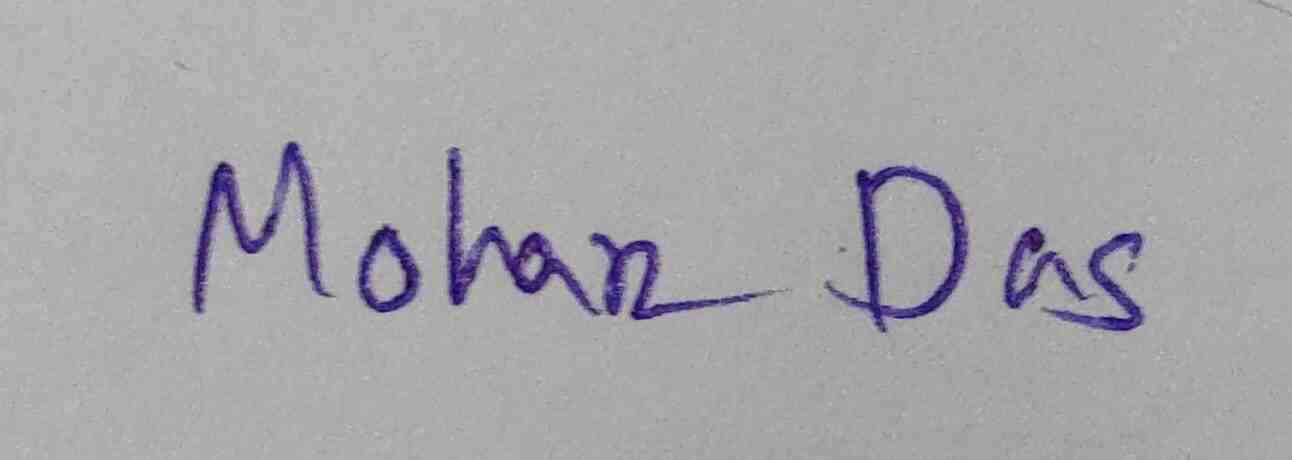 Mohan Das